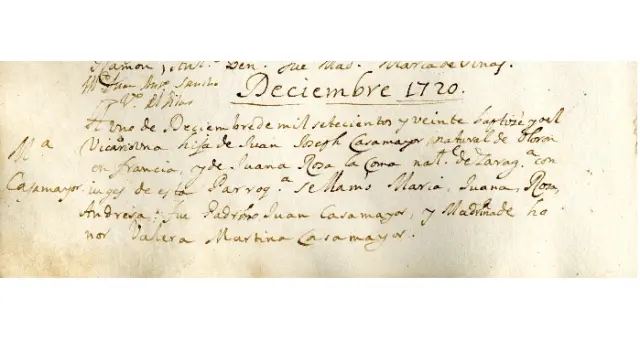 Ramon, y Ant.ª Den. fue Mad. Maria de Viñas.
M.º Juan Ant.º Sancho
V.º del Pilar
Deciembre 1720.
A uno de Deciembre de mil setecientos y veinte baptizé yo el
M.ª Vicario una hija de Juan Joseph Casamayor, natural de Oloron
en Francia, y de Juana Rosa la Coma nat.l de Zarag.ª con
Casamayor. iuges de esta Parroq.ª se llamo Maria, Juana, Rosa,
Andresa; fue Padrino Juan Casamayor, y Madrina de ho
nor Valera Martina Casamayor.